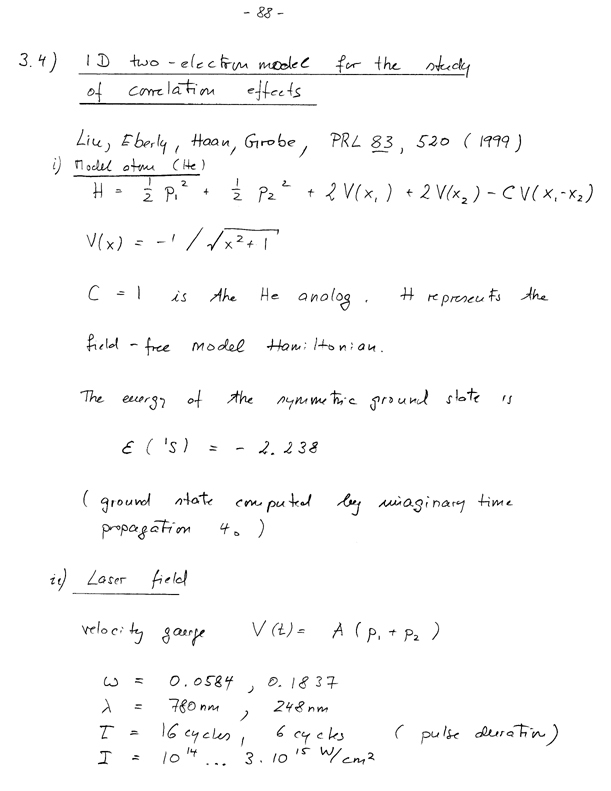 - 88 -
3.4) 1D two-electron model for the study
of correlation effects
Liu, Eberly, Haan, Grobe, PRL 83, 520 (1999)
i) Model atom (He)
H = 1/2 p₁² + 1/2 p₂² + 2V(x₁) + 2V(x₂) - CV(x₁-x₂)
V(x) = -1 / √x²+1
C = 1 is the He analog. H represents the
field-free model Hamiltonian.
The energy of the symmetric ground state is
ε(¹S) = - 2.238
(ground state computed by imaginary time
propagation 4.)
ii) Laser field
velocity gauge V(t) = A(p₁ + p₂)
ω = 0.0584, 0.1837
λ = 780 nm, 248 nm
T = 16 cycles, 6 cycles (pulse duration)
I = 10¹⁴ ... 3·10¹⁵ W/cm²